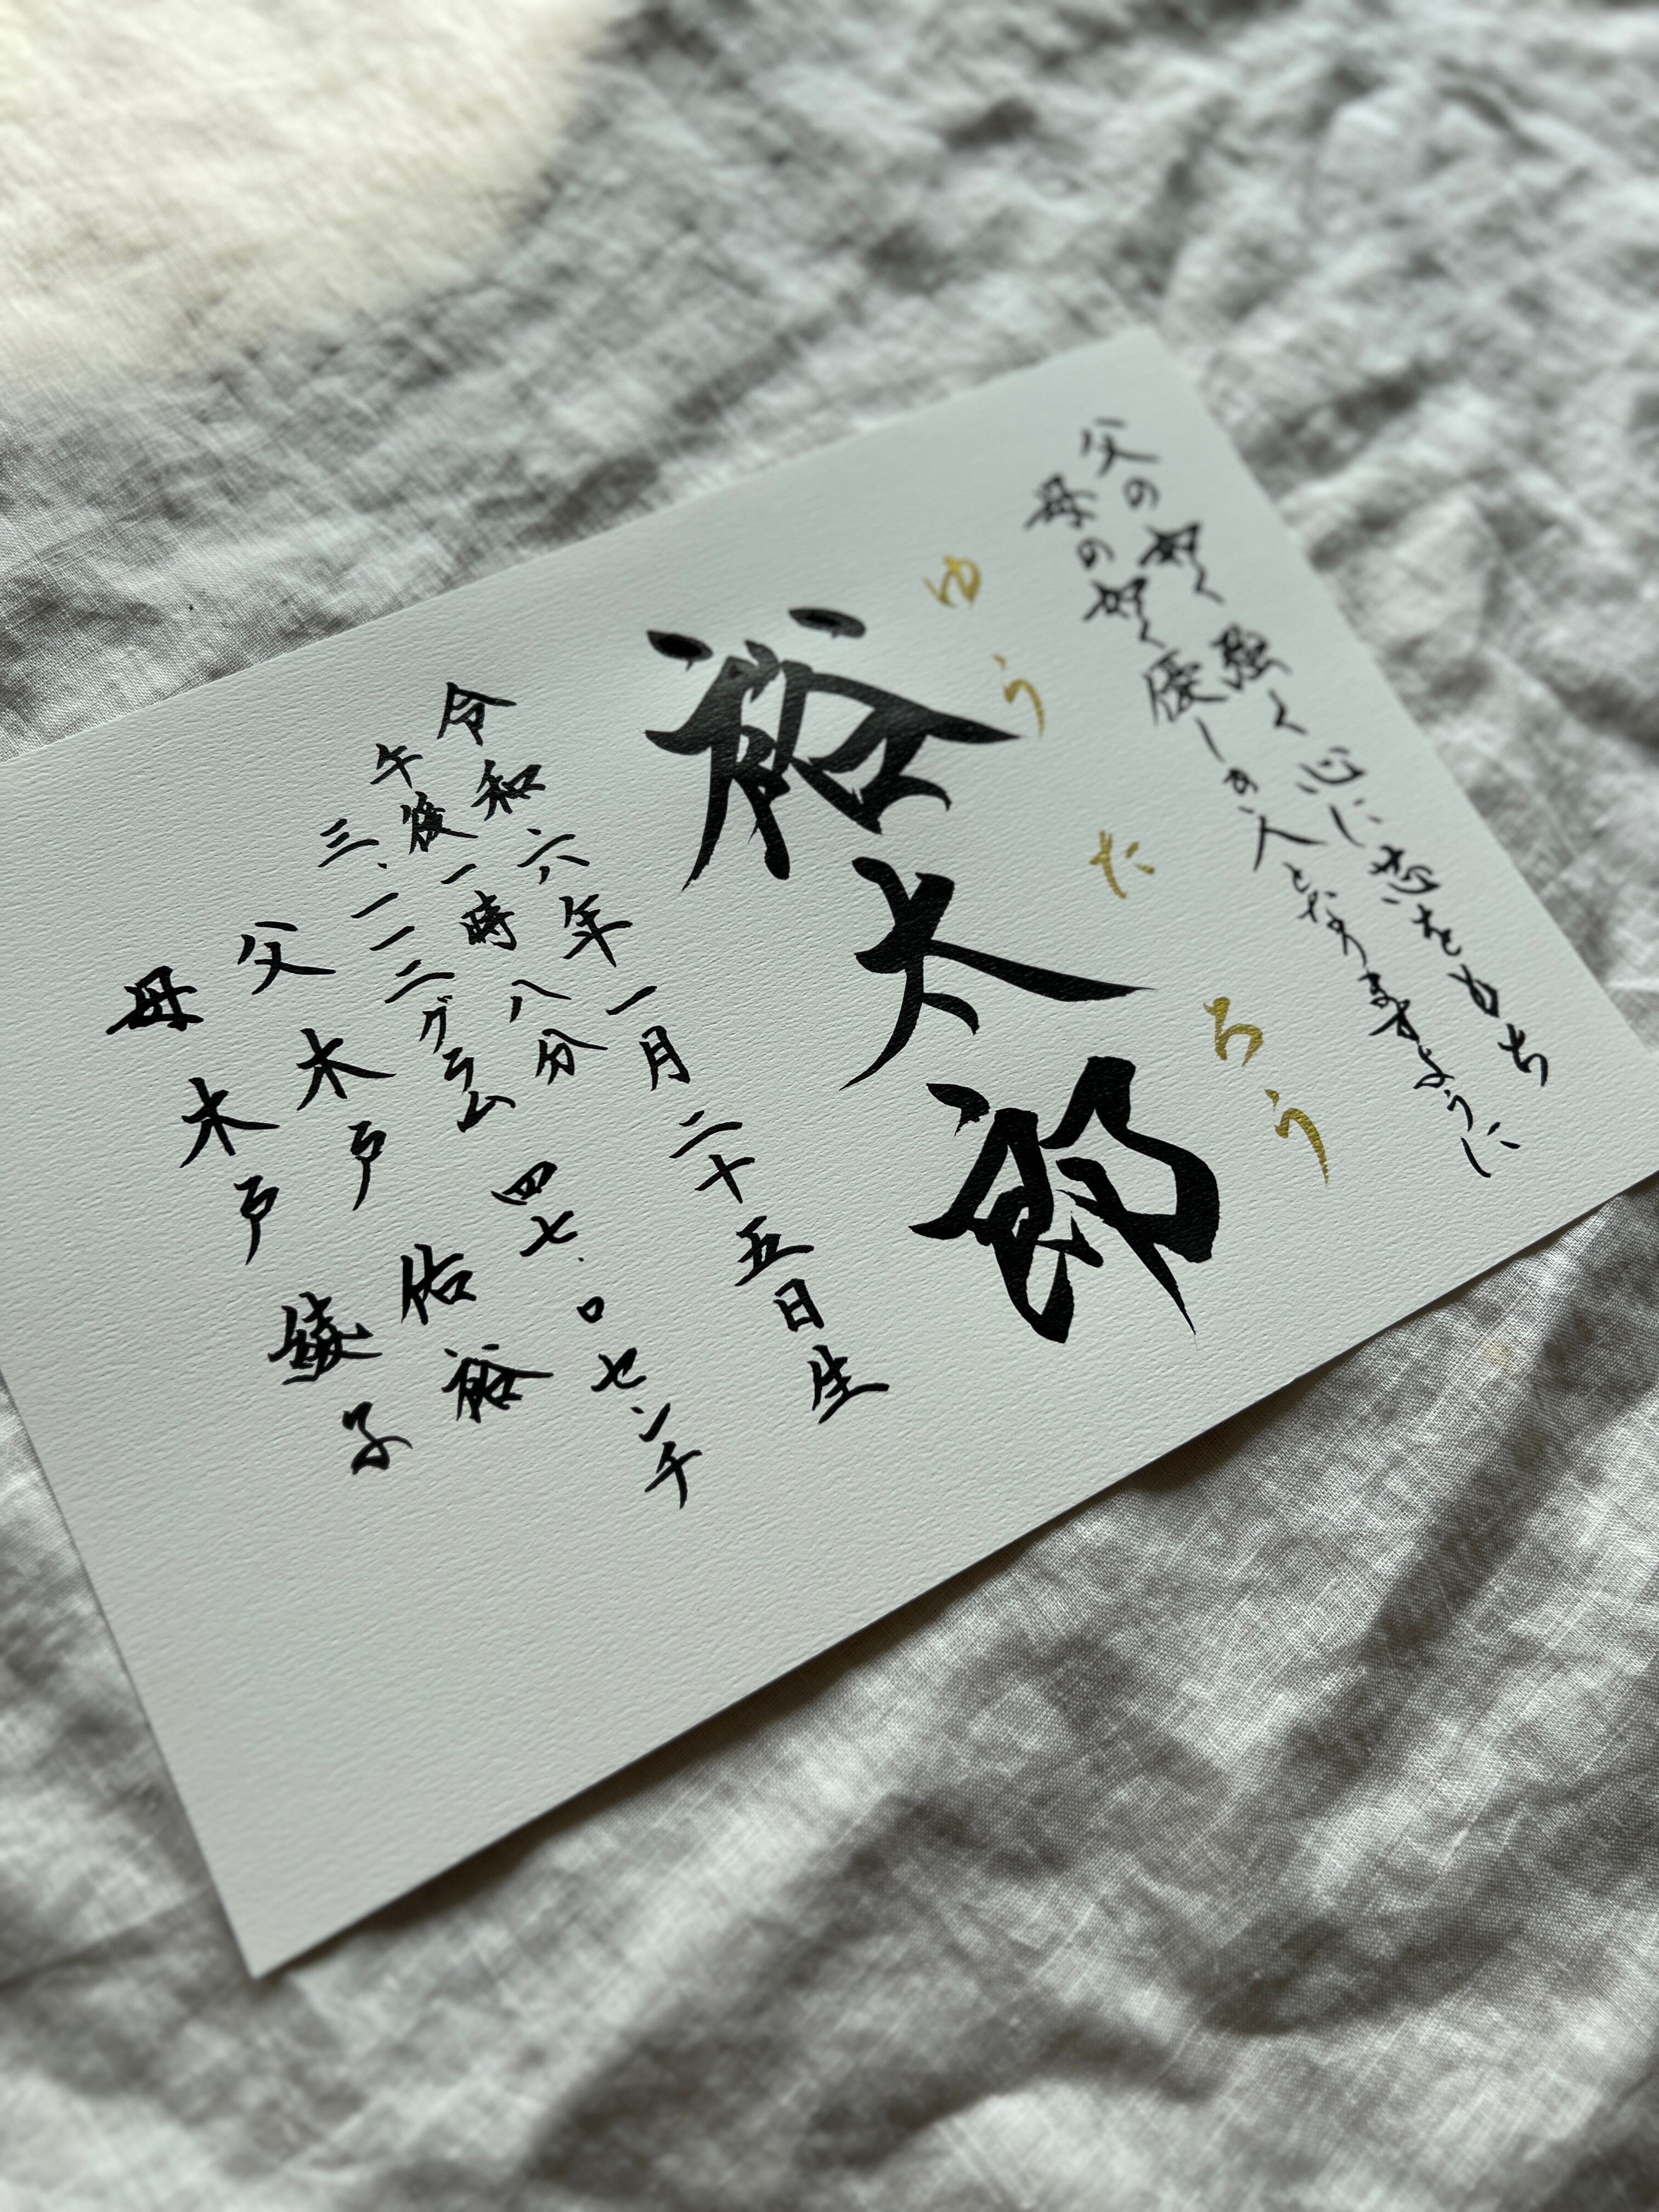 父の如く強く心に志をもち
母の如く優しき人となりますように
ゆうたろう
裕太郎
令和六年一月二十五日生
午後一時八分
三、一一二グラム 四七.〇センチ
父 木戸 佑裕
母 木戸 綾子